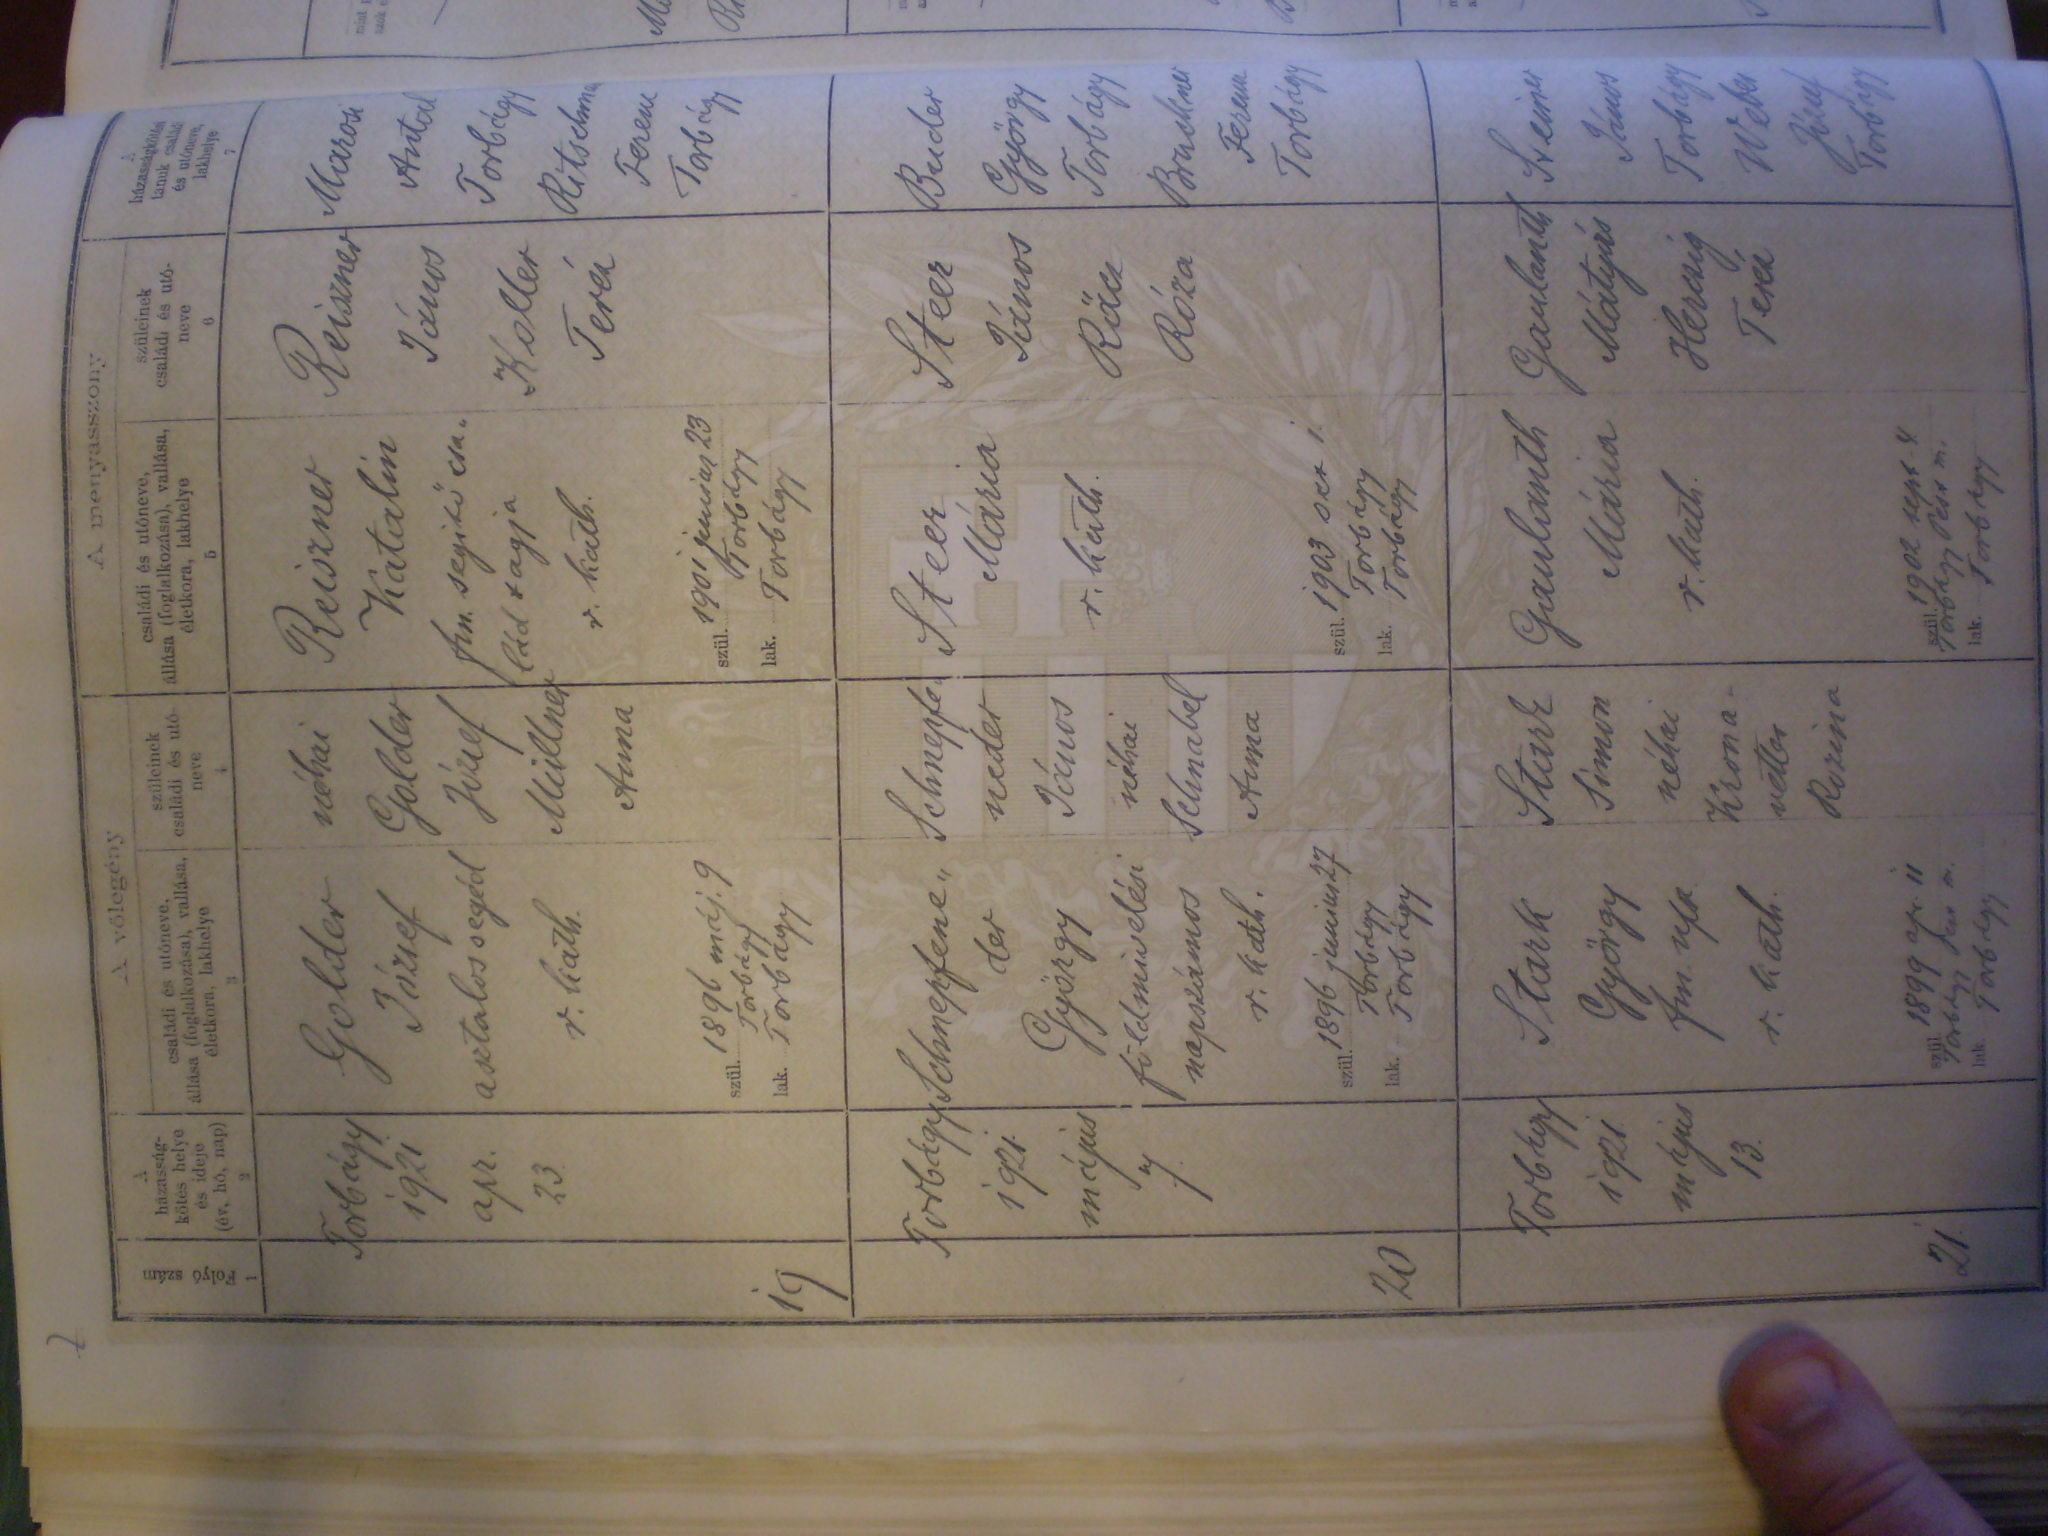 7
A vőlegény
A menyasszony
Folyó szám
1
A
házasság-
kötés helye
és ideje
(év, hó, nap)
2
családi és utóneve,
állása (foglalkozása), vallása,
életkora, lakhelye
3
szüleinek
családi és utó-
neve
4
családi és utóneve,
állása (foglalkozása), vallása,
életkora, lakhelye
5
szüleinek
családi és utó-
neve
6
A
házasságkötési
tanuk családi
és utóneve,
lakhelye
7
19
Torbágy
1921
apr.
23
Golder
József
asztalossegéd
r. kath.
szül. 1896 máj. 9
Torbágy
lak. Torbágy
néhai
Golder
József
Millner
Anna
Reiszner
Katalin
fm. segitő csa„
lád tagja
r. kath.
szül. 1901 junius 23
Torbágy
lak. Torbágy
Reiszner
János
Koller
Teréz
Marosi
Antal
Torbágy
Ferenc
Torbágy
20
Torbágy
1921.
május
7.
Schnepfene„
der
György
földmivelési
napszámos
r. kath.
szül. 1896 junius 27
Torbágy
lak. Torbágy
Schnepfe„
neder
János
néhai
Schnabel
Anna
Steer
Mária
r. kath.
szül. 1903 oct 1.
Torbágy
lak. Torbágy
Steer
János
Rácz
Róza
Buder
György
Torbágy
Ferenc
Torbágy
21.
Torbágy
1921.
május
13.
Stark
György
fm. nsz.
r. kath.
szül. 1899 apr. 11
Torbágy Pest m.
lak. Torbágy
Stark
Simon
néhai
Krona-
vetter
Rozina
Gaulanth
Mária
r. kath.
szül. 1902 sept. 8
Torbágy Pest m.
lak. Torbágy
Gaulanth
Mátyás
Herczig
Teréz
Steiner
János
Torbágy
Weber
József
Torbágy